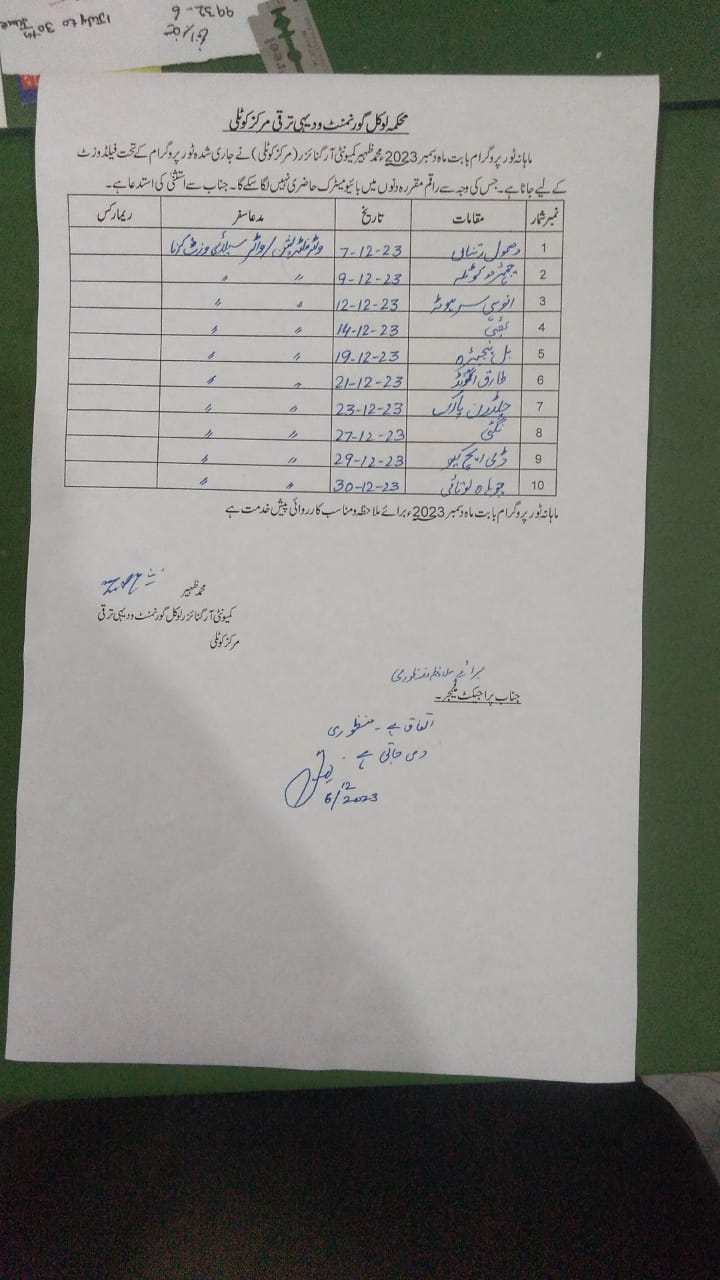 1 July to 30th June
9932-6
محکمہ لوکل گورنمنٹ و دیہی ترقی مرکز کوٹلی
ماہانہ ٹور پروگرام بابت ماہ دسمبر 2023ء محمد ظہیر کمیونٹی آرگنائزر (مرکز کوٹلی) نے جاری شدہ ٹور پروگرام کے تحت فیلڈ وزٹ
کے لیے جانا ہے۔ جس کی وجہ سے راقم مقررہ دنوں میں بائیومیٹرک حاضری نہیں لگا سکے گا۔ جناب سے استثنٰی کی استدعا ہے۔
نمبر شمار مقامات تاریخ مدعا سفر ریمارکس
1 7-12-23 واٹر فلٹریشن / واٹر سپلائی وزٹ کرنا
2 9-12-23 〃 〃
3 12-12-23 〃 〃
4 14-12-23 〃 〃
5 19-12-23 〃 〃
6 طارق 21-12-23 〃 〃
7 چلڈرن پارک 23-12-23 〃 〃
8 27-12-23 〃 〃
9 ڈی ایچ کیو 29-12-23 〃 〃
10 30-12-23 〃 〃
ماہانہ ٹور پروگرام بابت ماہ دسمبر 2023ء برائے ملاحظہ و مناسب کارروائی پیش خدمت ہے
محمد ظہیر
کمیونٹی آرگنائزر لوکل گورنمنٹ و دیہی ترقی
مرکز کوٹلی
برائے ملاحظہ منظوری
جناب پراجیکٹ منیجر۔
اتفاق ہے - منظوری
دی جاتی ہے -
6/12/2023